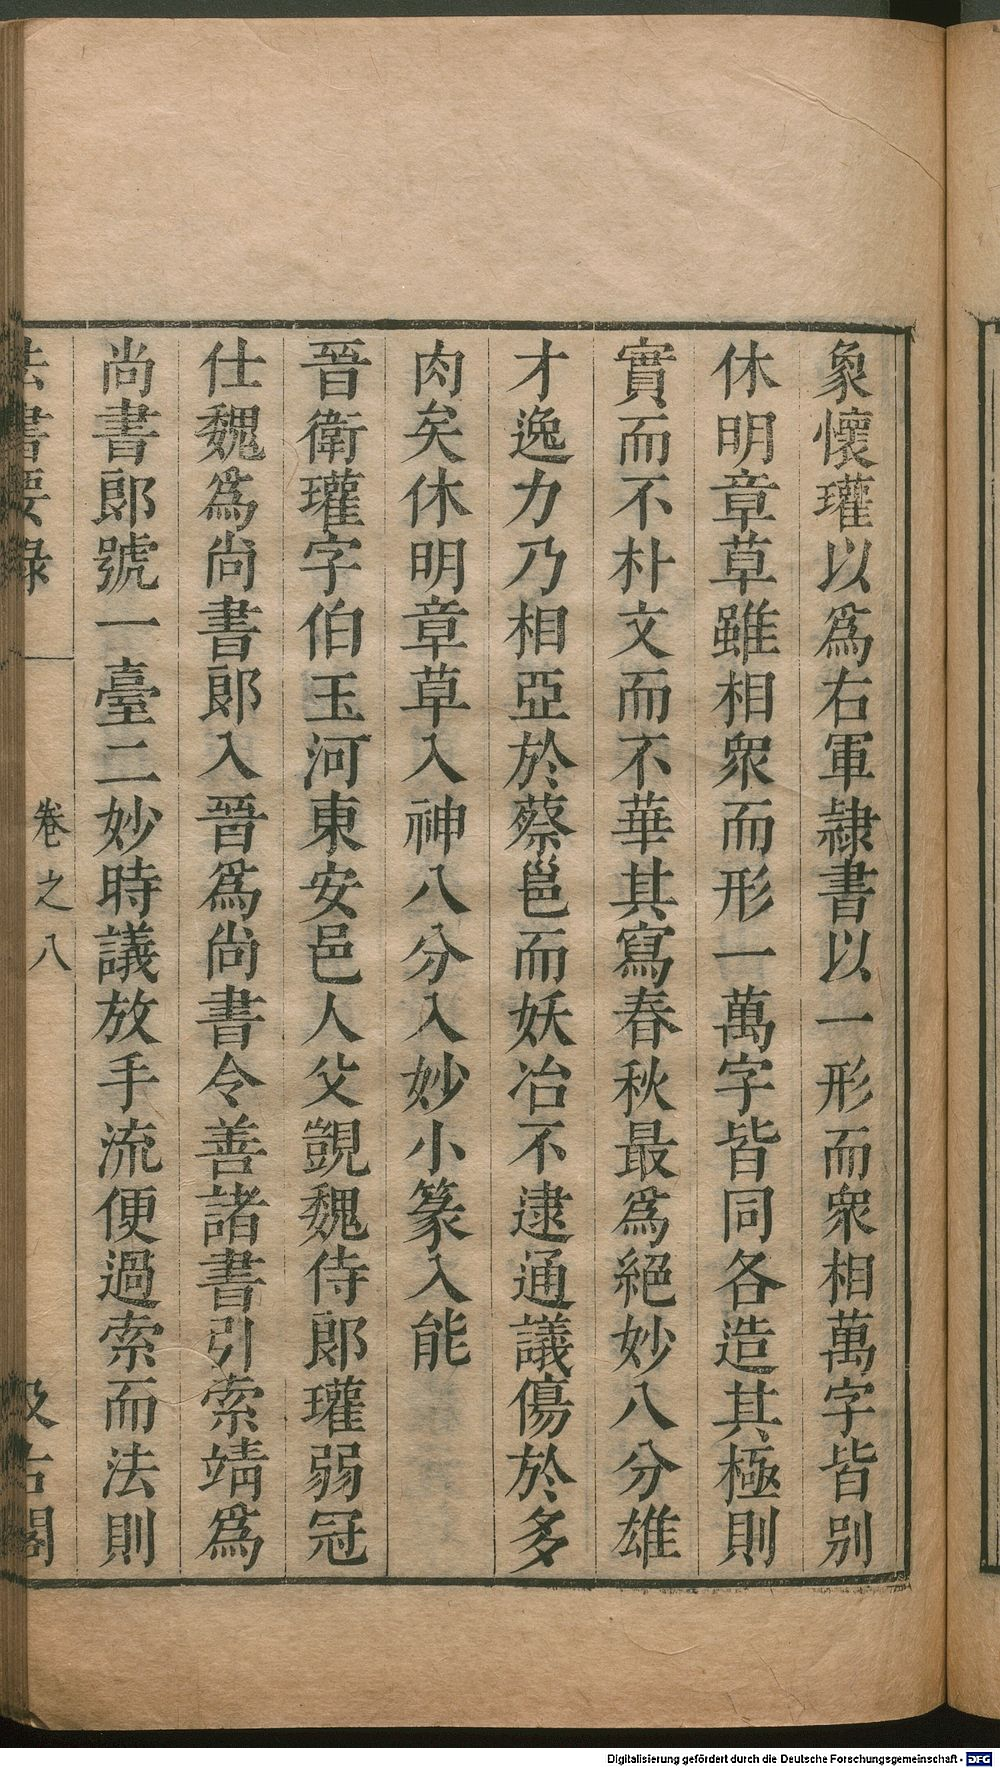 象懷瓘以爲右軍隷書以一形而衆相萬字皆别
休明章草雖相衆而形一萬字皆同各造其極則
實而不朴文而不華其寫春秋最爲絕妙八分雄
才逸力乃相亞於蔡邕而妖冶不逮通議傷於多
肉矣休明章草入神八分入妙小篆入能
晉衛瓘字伯玉河東安邑人父覬魏侍郎瓘弱冠
仕魏爲尚書郎入晉爲尚書令善諸書引索靖爲
尚書郎號一臺二妙時議放手流便過索而法則
法書要錄 卷之八 汲古閣
Digitalisierung gefördert durch die Deutsche Forschungsgemeinschaft - DFG